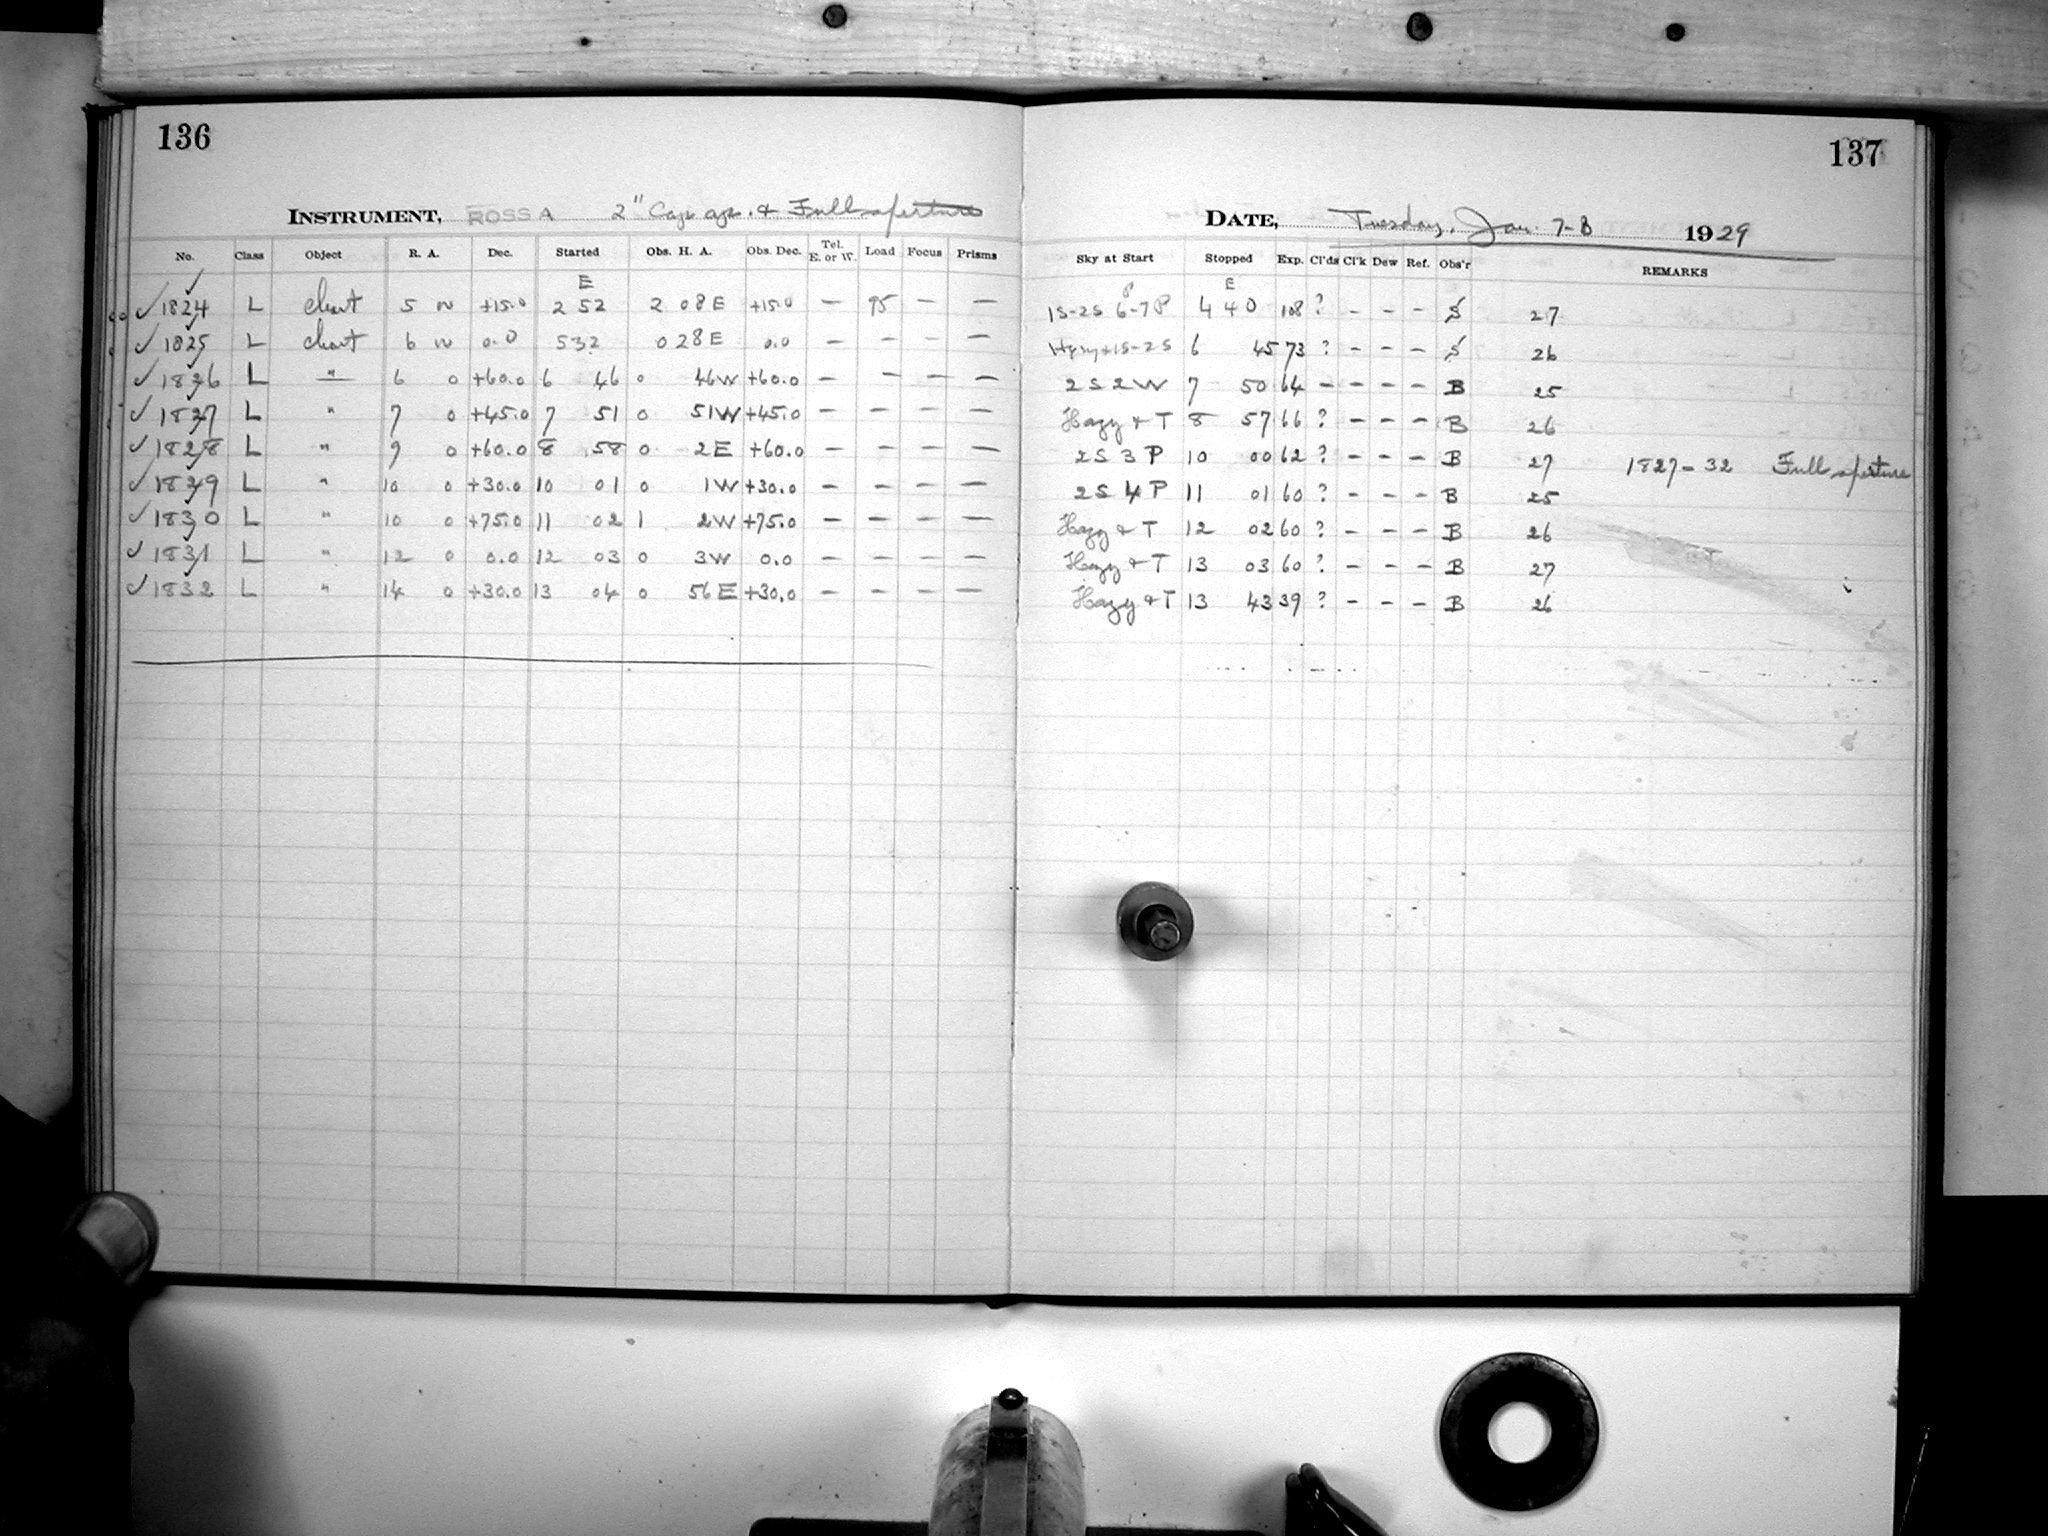 136
INSTRUMENT, ROSS A 2" Cap ap. & Full aperture
No. Class Object R. A. Dec. Started Obs. H. A. Obs. Dec. Tel. E. or W. Load Focus Prisms
E
✓ 1824 L chart 5 N +15.0 2 52 2 08 E +15.0 — 95 — —
✓ 1825 L chart 6 N 0.0 5 32 0 28 E 0.0 — — — —
✓ 1826 L " 6 0 +60.0 6 46 0 46 W +60.0 — — — —
✓ 1827 L " 7 0 +45.0 7 51 0 51 W +45.0 — — — —
✓ 1828 L " 9 0 +60.0 8 58 0 2 E +60.0 — — — —
✓ 1829 L " 10 0 +30.0 10 01 0 1 W +30.0 — — — —
✓ 1830 L " 10 0 +75.0 11 02 1 2 W +75.0 — — — —
✓ 1831 L " 12 0 0.0 12 03 0 3 W 0.0 — — — —
✓ 1832 L " 14 0 +30.0 13 04 0 56 E +30.0 — — — —
137
DATE, Tuesday, Jan. 7-8 1929
Sky at Start Stopped Exp. Cl'ds Cl'k Dew Ref. Obs'r REMARKS
E
1S-2S 6-7P 4 40 108 ? - - - S 27
1S-2S 6 45 73 ? - - - S 26
2S 2W 7 50 64 - - - - B 25
Hazy & T 8 57 66 ? - - - B 26
2S 3P 10 00 62 ? - - - B 27 1827-32 Full aperture
2S 4P 11 01 60 ? - - - B 25
Hazy & T 12 02 60 ? - - - B 26
Hazy & T 13 03 60 ? - - - B 27
Hazy & T 13 43 39 ? - - - B 26